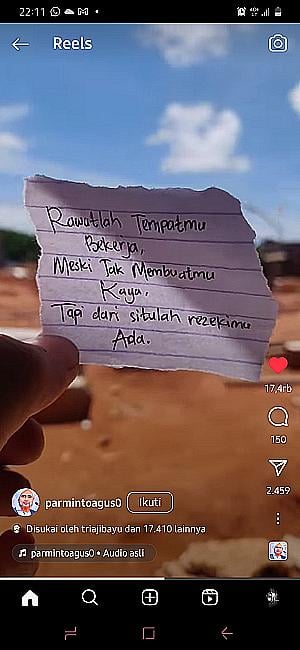 22:11
Reels
Rawatlah Tempatmu
Bekerja,
Meski Tak Membuatmu
Kaya,
Tapi dari situlah rezekimu
Ada.
17,4rb
150
2.459
parmintoagus0 Ikuti
Disukai oleh triajibayu dan 17.410 lainnya
parmintoagus0 • Audio asli